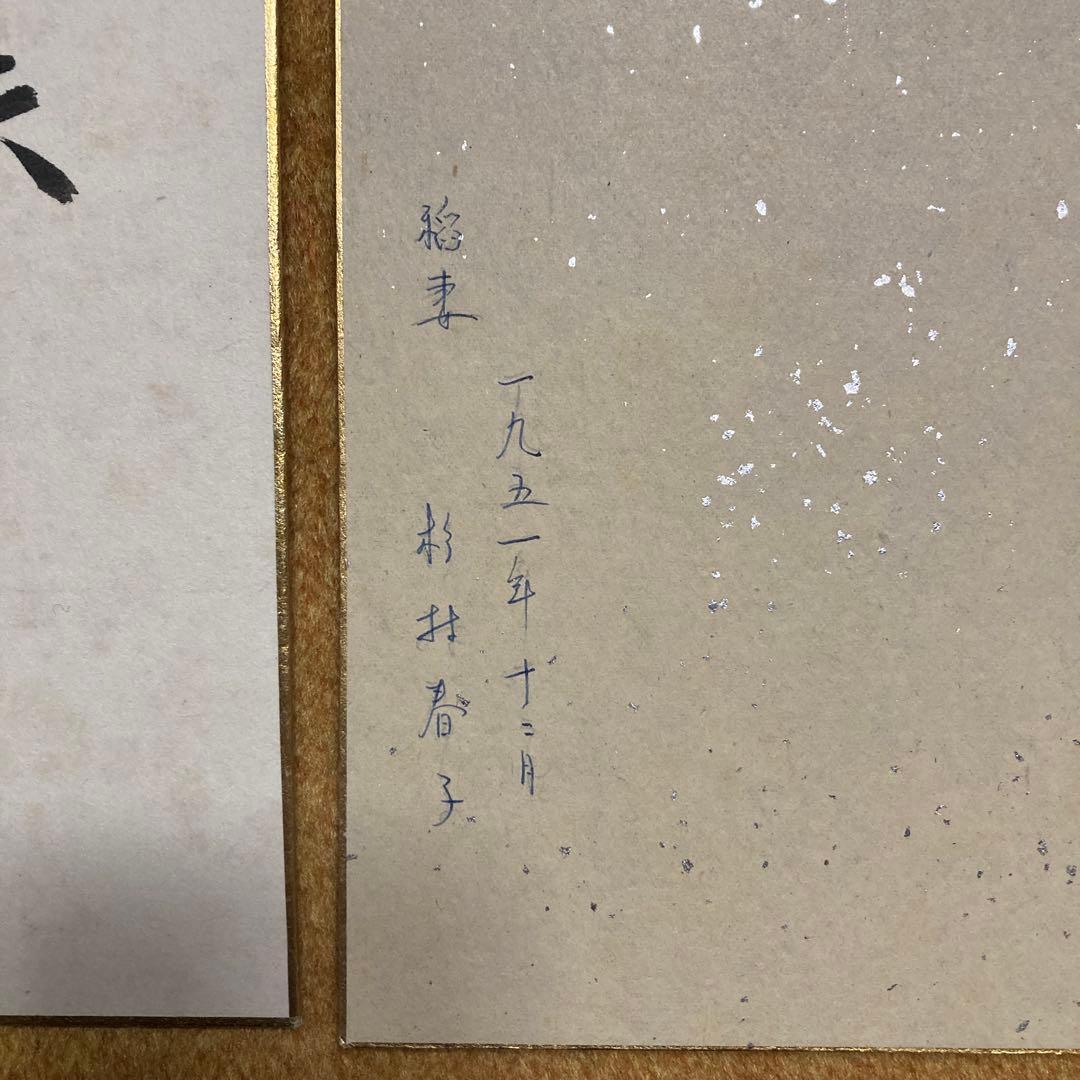 一九五一年十二月
稲妻 杉村春子